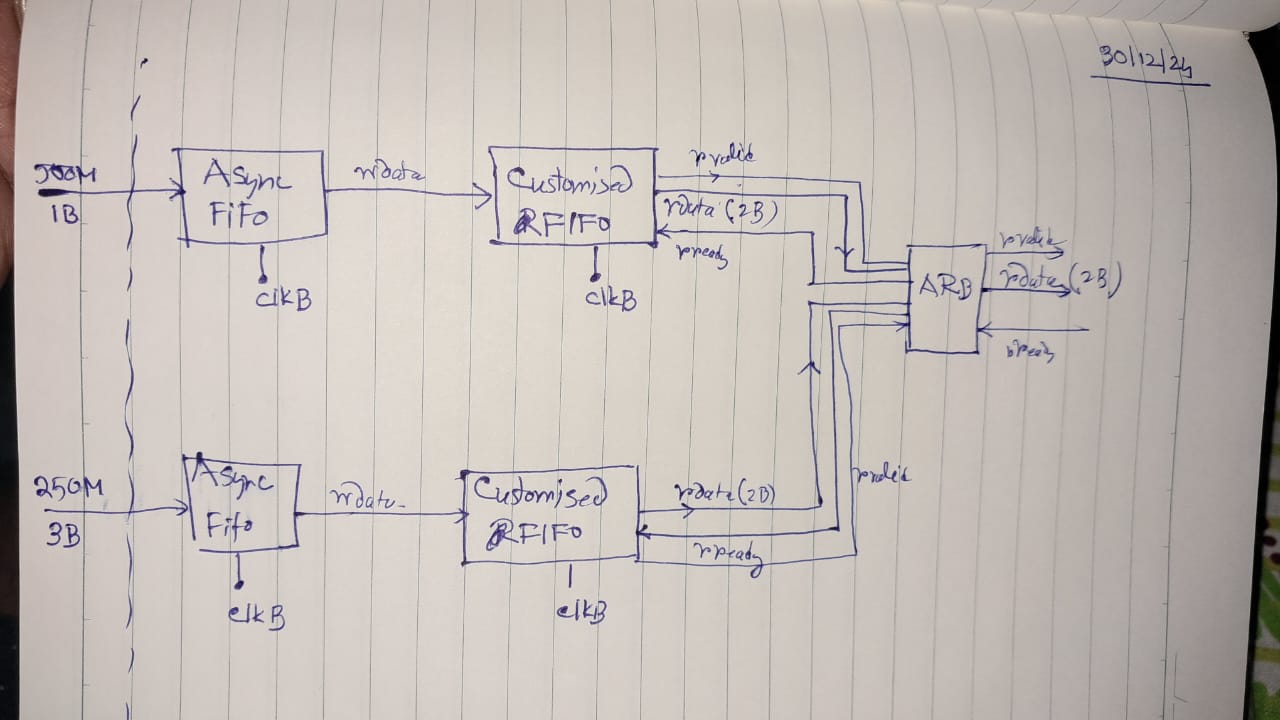 30/12/24
500M
1B
Async
FiFo
clkB
wdata
Customised
RFIFO
clkB
rvalid
rdata (2B)
rready
ARB
rvalid
rdata (2B)
rready
250M
3B
Async
Fifo
clkB
wdata
Customised
RFIFO
clkB
rdata (2B)
rready
rvalid